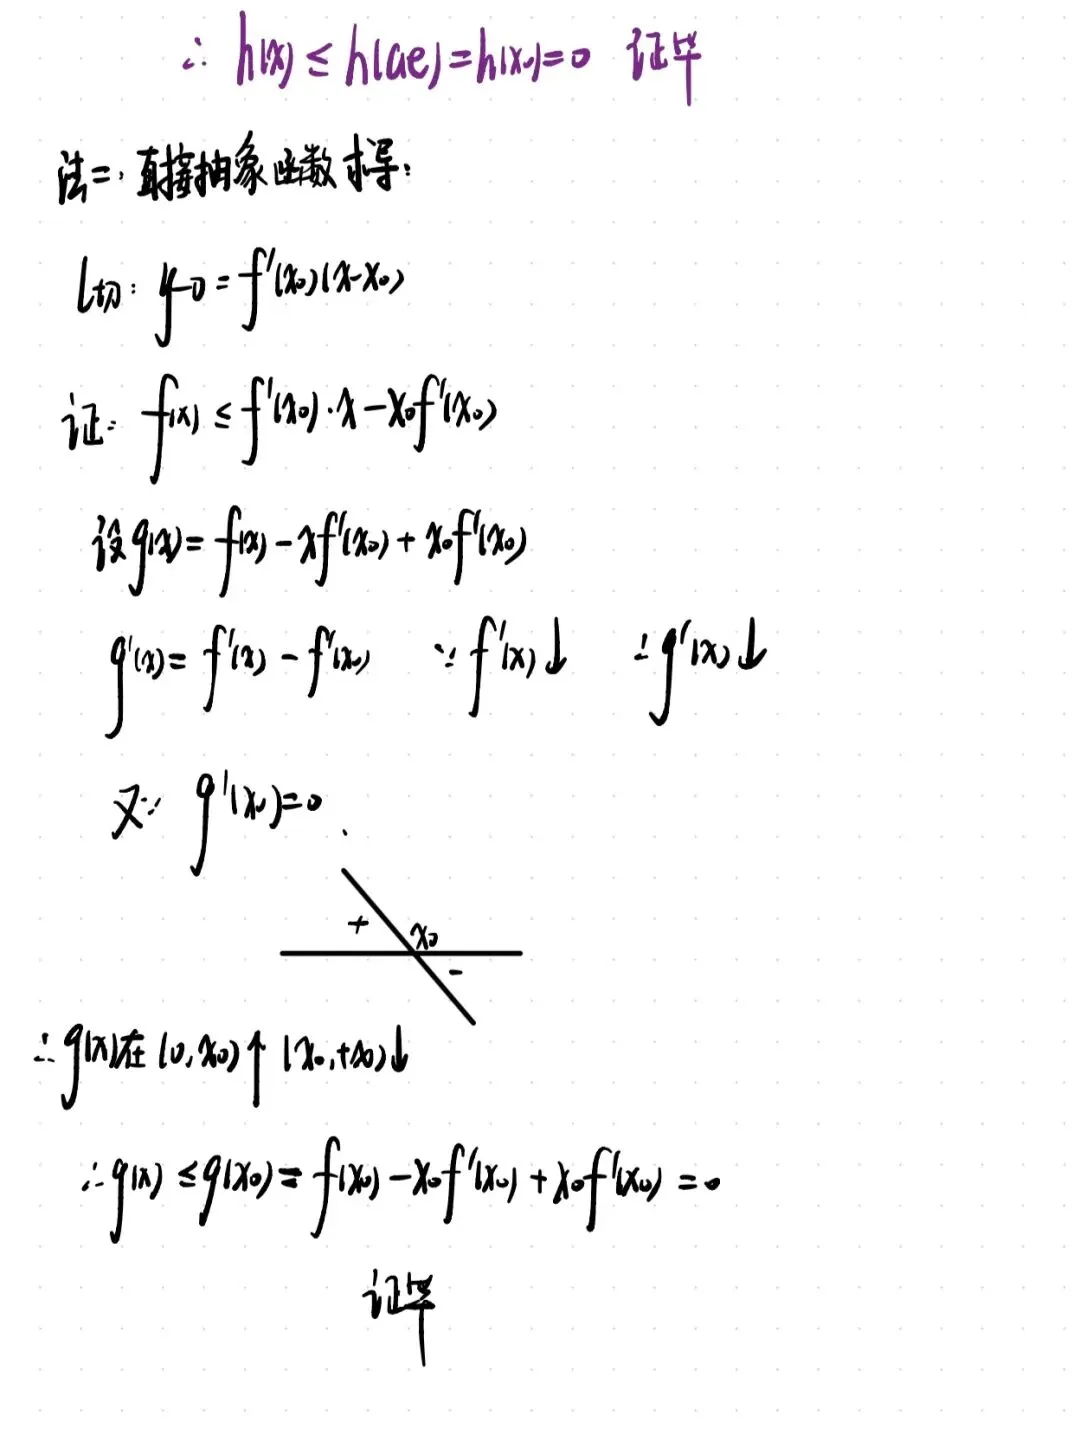 ∴ h(x) ≤ h(ae) = h(x₀) = 0 证毕
法二: 直接抽象函数求导:
l切: y-0 = f'(x₀)(x-x₀)
证: f(x) ≤ f'(x₀)·x - x₀f'(x₀)
设 g(x) = f(x) - xf'(x₀) + x₀f'(x₀)
g'(x) = f'(x) - f'(x₀) ∵ f'(x)↓ ∴ g'(x)↓
又∵ g'(x₀)=0
+ x₀ -
∴ g(x)在(0,x₀)↑ (x₀,+∞)↓
∴ g(x) ≤ g(x₀) = f(x₀) - x₀f'(x₀) + x₀f'(x₀) = 0
证毕